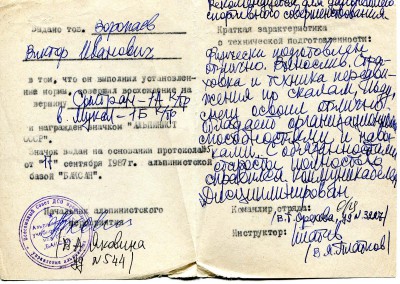 Выдано тов. Воропаев
Виктор Иванович
в том, что он выполнил установлен-
ные нормы, совершил восхождение на
вершину Суллран - 1А
в. Мукал - 1Б к/тр
и награжден значком "АЛЬПИНИСТ
СССР".
Значок выдан на основании протокола
от "11" сентября 1987г. альпинистской
базой "БАКСАН".
Начальник альпинистского
В.А. Яковина
уд N 544)
спортивного совершенствования
Краткая характеристика
о технической подготовленности:
Физически подготовлен
отлично. Вынослив. Стра-
ховка и техника передви-
жения по скалам, льду,
снегу освоил отлично.
Обладает организационными
способностями и навы-
ками. С обязанностями
старосты полностью
справился. Коммуникабелен
Дисциплинирован
Командир отряда:
(В.Т. Орехова, уд N 3227)
Инструктор: Платов
(В.Я. Платонов)